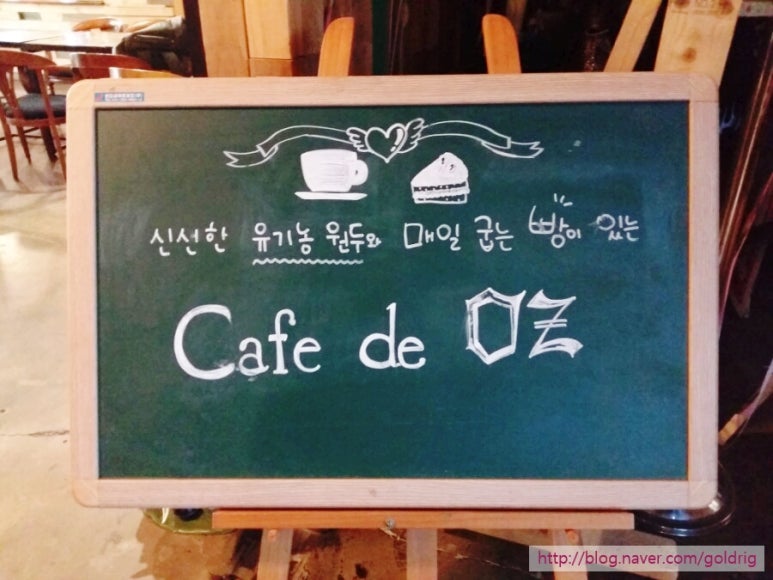 신선한 유기농 원두와 매일 굽는 빵이 있는
Cafe de OZ
http://blog.naver.com/goldrig